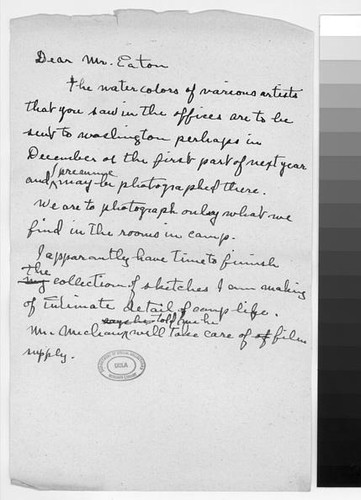 Dear Mr. Eaton
The watercolors of various artists
that you saw in the offices are to be
sent to Washington perhaps in
December or the first part of next year
and I presume may be photographed there.
We are to photograph only what we
find in the rooms in camp.
I apparently have time to finish
the my collection of sketches I am making
of intimate detail of camp life.
Mr. says he told me he will take care of film
supply.
UCLA